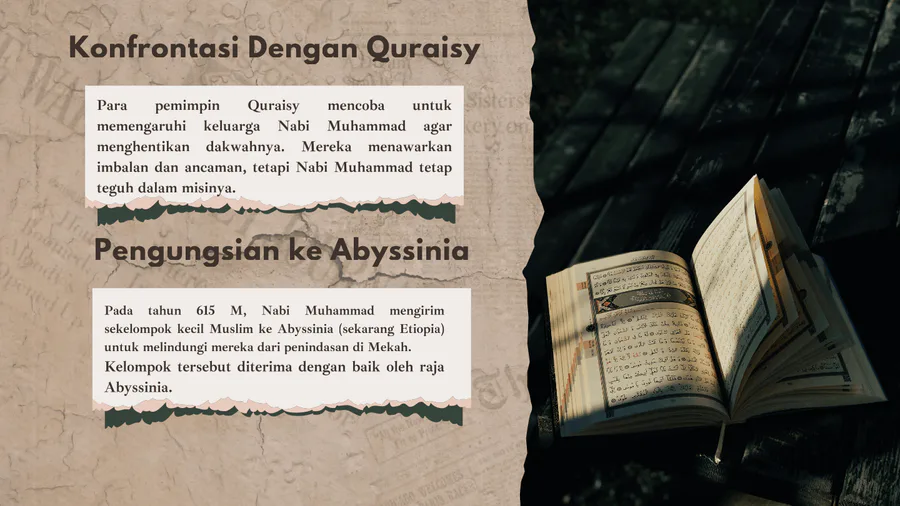 Konfrontasi Dengan Quraisy
Para pemimpin Quraisy mencoba untuk
memengaruhi keluarga Nabi Muhammad agar
menghentikan dakwahnya. Mereka menawarkan
imbalan dan ancaman, tetapi Nabi Muhammad tetap
teguh dalam misinya.
Pengungsian ke Abyssinia
Pada tahun 615 M, Nabi Muhammad mengirim
sekelompok kecil Muslim ke Abyssinia (sekarang Etiopia)
untuk melindungi mereka dari penindasan di Mekah.
Kelompok tersebut diterima dengan baik oleh raja
Abyssinia.